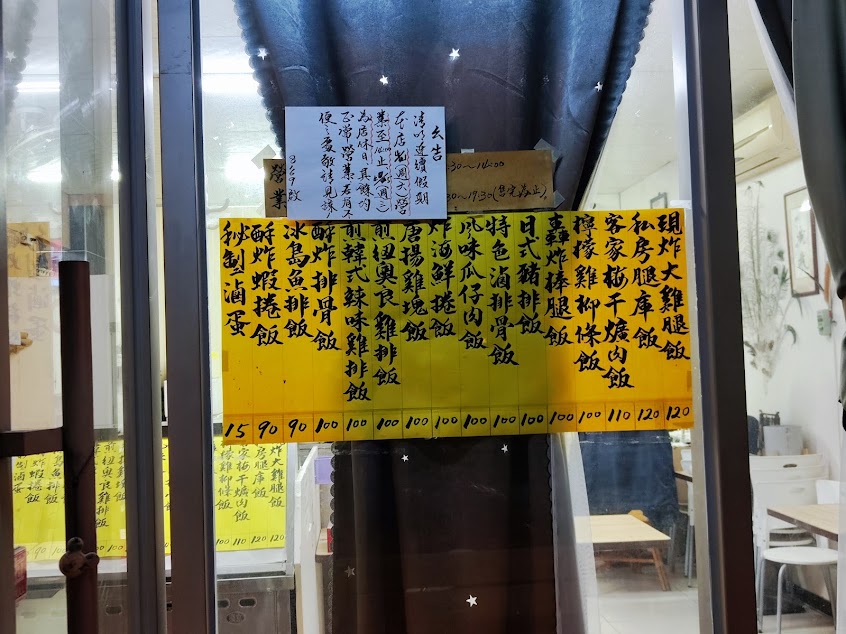 公告
清明連續假期
本店週六營
業至14:00止 週三
為店休日其餘均
正常營業若有不
便之處敬請見諒
369啟
營業
:30~14:00
:30~19:30(售完為止)
現炸大雞腿飯 120
私房腿庫飯 120
客家梅干爌肉飯 110
檸檬雞柳條飯 100
轟炸棒腿飯 100
日式豬排飯 100
特色滷排骨飯 100
風味瓜仔肉飯 100
炸海鮮捲飯 100
唐揚雞塊飯 100
煎紐奧良雞排飯 100
煎韓式辣味雞排飯 100
酥炸排骨飯 100
冰島魚排飯 90
酥炸蝦捲飯 90
秘製滷蛋 15
炸大雞腿飯 120
房腿庫飯 120
家梅干爌肉飯 110
檬雞柳條飯 100
紐奧良雞排飯 100